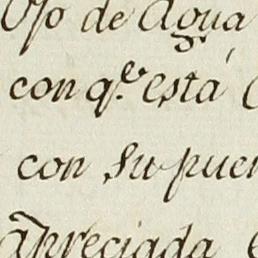 Ojo de Agua
con q.e está
con su puen
apreciada